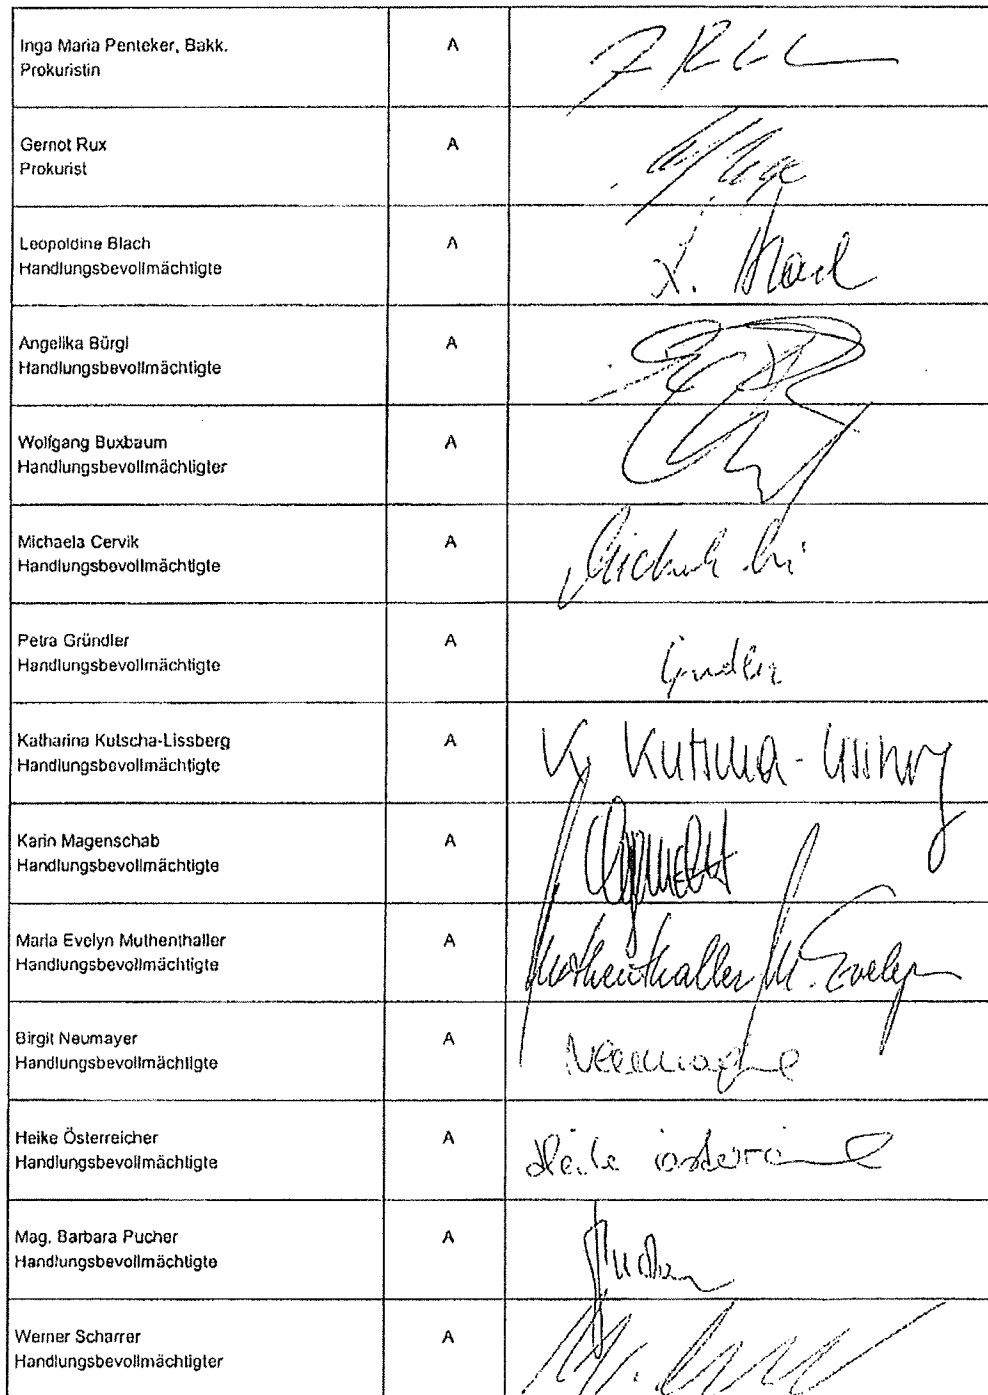 Inga Maria Penteker, Bakk.
Prokuristin
A
Gernot Rux
Prokurist
A
Leopoldine Blach
Handlungsbevollmächtigte
A
L. Blach
Angelika Bürgl
Handlungsbevollmächtigte
A
Wolfgang Buxbaum
Handlungsbevollmächtigter
A
Michaela Cervik
Handlungsbevollmächtigte
A
Petra Gründler
Handlungsbevollmächtigte
A
Katharina Kutscha-Lissberg
Handlungsbevollmächtigte
A
K. Kutscha-Lissberg
Karin Magenschab
Handlungsbevollmächtigte
A
Maria Evelyn Muthenthaller
Handlungsbevollmächtigte
A
Muthenthaller M. Evelyn
Birgit Neumayer
Handlungsbevollmächtigte
A
Heike Österreicher
Handlungsbevollmächtigte
A
Mag. Barbara Pucher
Handlungsbevollmächtigte
A
Werner Scharrer
Handlungsbevollmächtigter
A